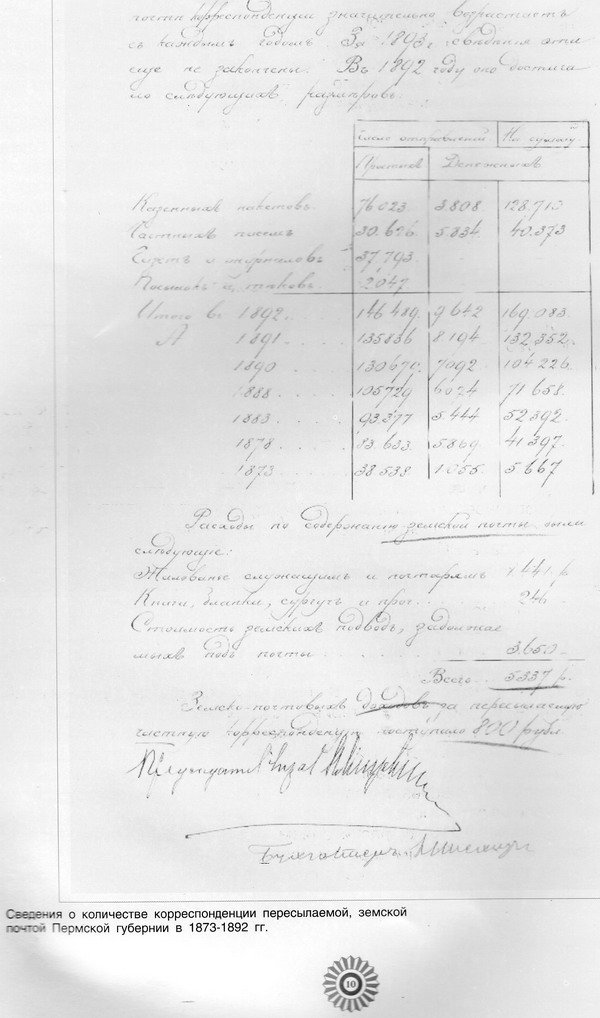 почты корреспонденции значительно возрастаетъ
съ каждымъ годомъ. За 1893 г. сведения эти
еще не закончены. Въ 1892 году оно достига
ло слѣдующихъ размѣровъ.
Число отправленiй На сумму
Простыхъ Денежныхъ
Казенныхъ пакетовъ 76023 3.808 128.710
Частныхъ писемъ 30.626 5.834 40.373
и журналовъ 37.793
Посылокъ 2047
Итого въ 1892 146489 9642 169.083
1891 135836 8.194 132.352
1890 130679 7092 104.226
1888 105729 6024 71658
1883 93.377 5.444 52392
1878 83.633 5.869 41.397
1873 38538 1.055 5667
Расходы по содержанию земской почты были
слѣдующiе:
Жалованье служащимъ и почтарямъ 1.441 р
Книги, бланки, сургучъ и проч. 246
Стоимость земскихъ подводъ,
мыхъ подъ почты 3.650
Всего 5337 р.
Земско-почтовыхъ доходовъ за пересылаемую
частную корреспонденцiю поступало 800 рубл.
Председатель
Бухгалтеръ
Сведения о количестве корреспонденции пересылаемой, земской
почтой Пермской губернии в 1873-1892 гг.
10